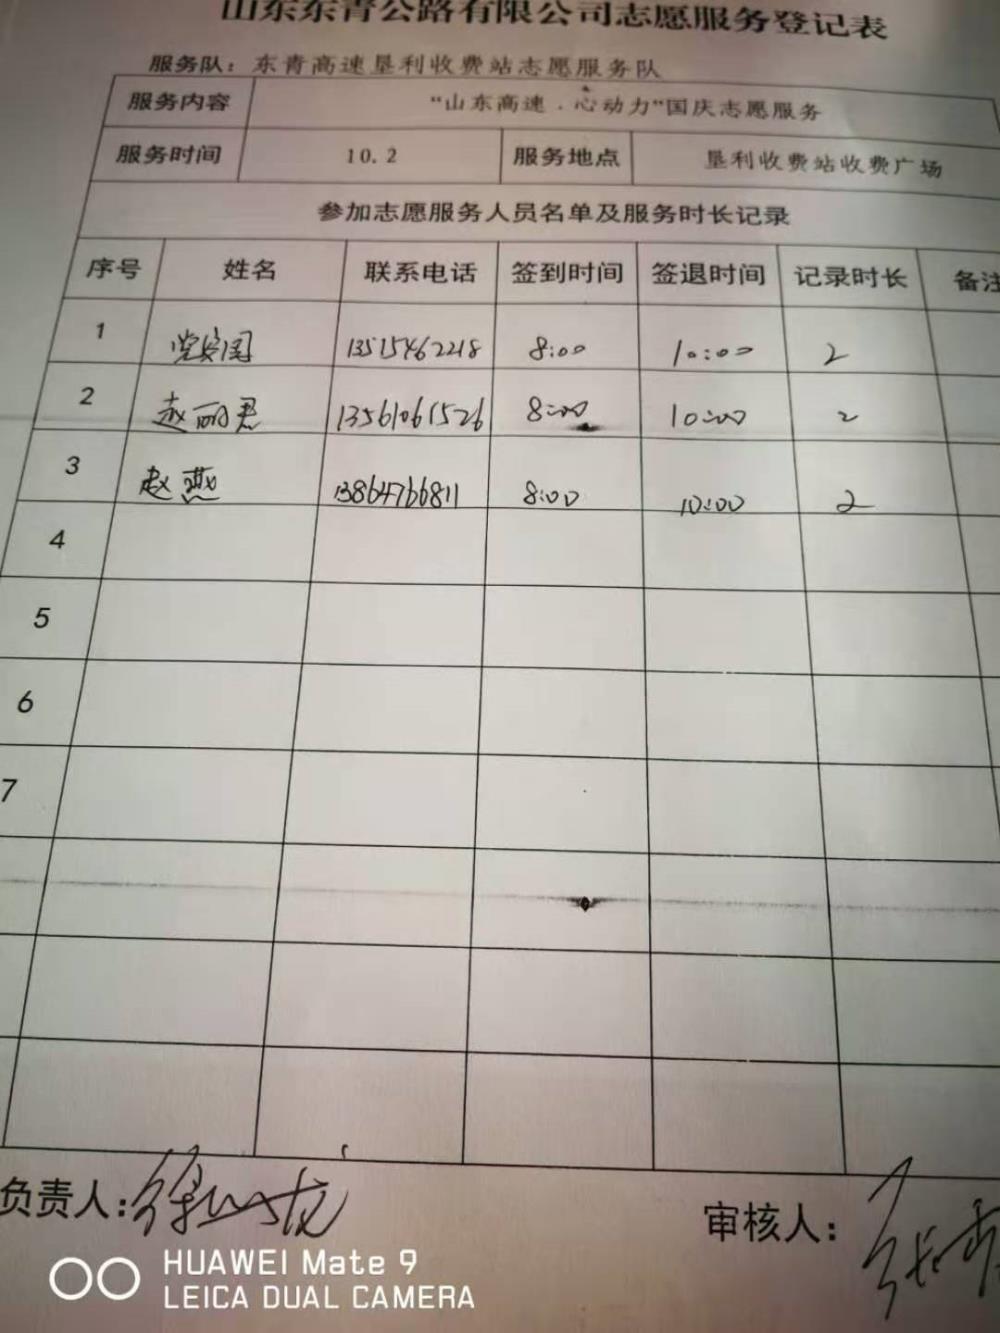 山东东青公路有限公司志愿服务登记表
服务队：东青高速垦利收费站志愿服务队
服务内容 “山东高速．心动力”国庆志愿服务
服务时间 10.2 服务地点 垦利收费站收费广场
参加志愿服务人员名单及服务时长记录
序号 姓名 联系电话 签到时间 签退时间 记录时长 备注
1 党安国 13515462218 8:00 10:00 2
2 赵丽君 13561061526 8:00 10:00 2
3 赵燕 13864766811 8:00 10:00 2
4
5
6
7
负责人: 审核人：
HUAWEI Mate 9
LEICA DUAL CAMERA